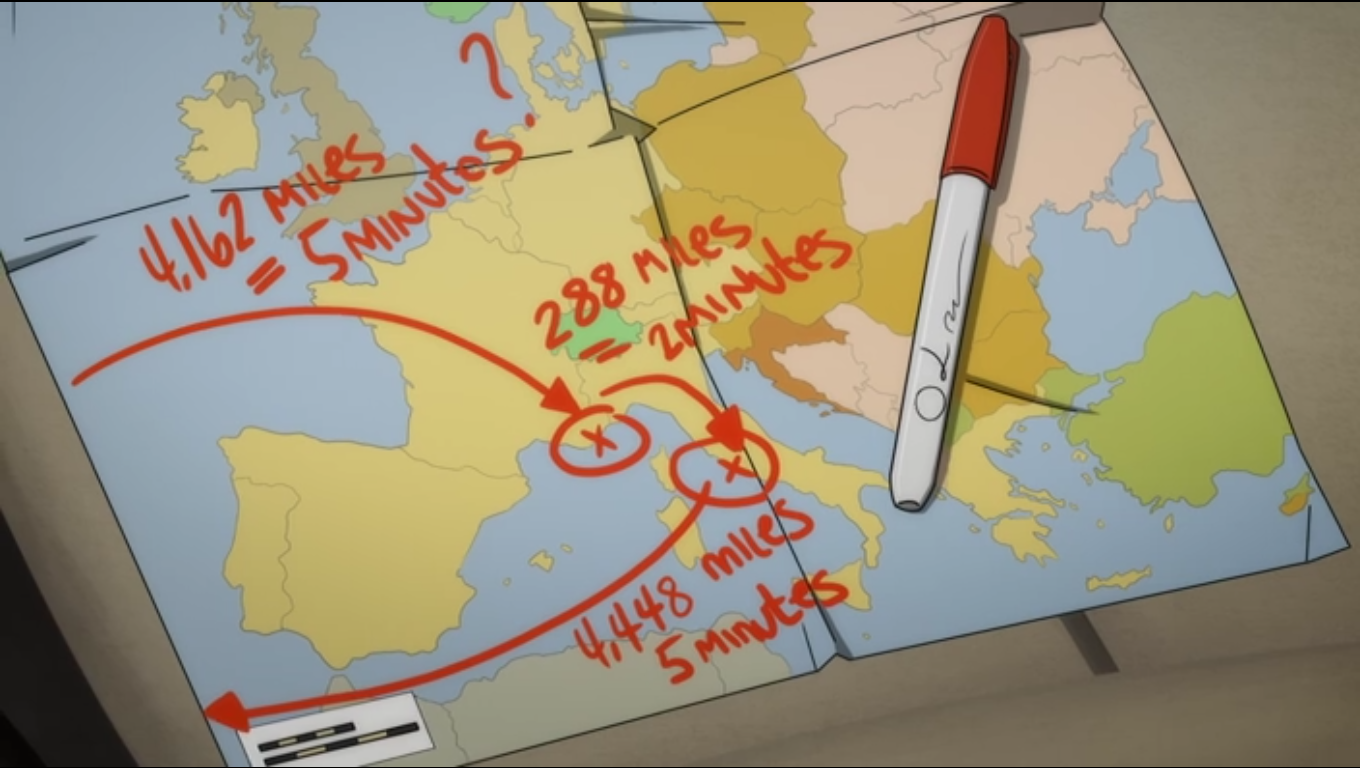 ?
4,162 MILES
= 5 MINUTES
288 MILES
= 2 MINUTES
4,448 MILES
5 MINUTES